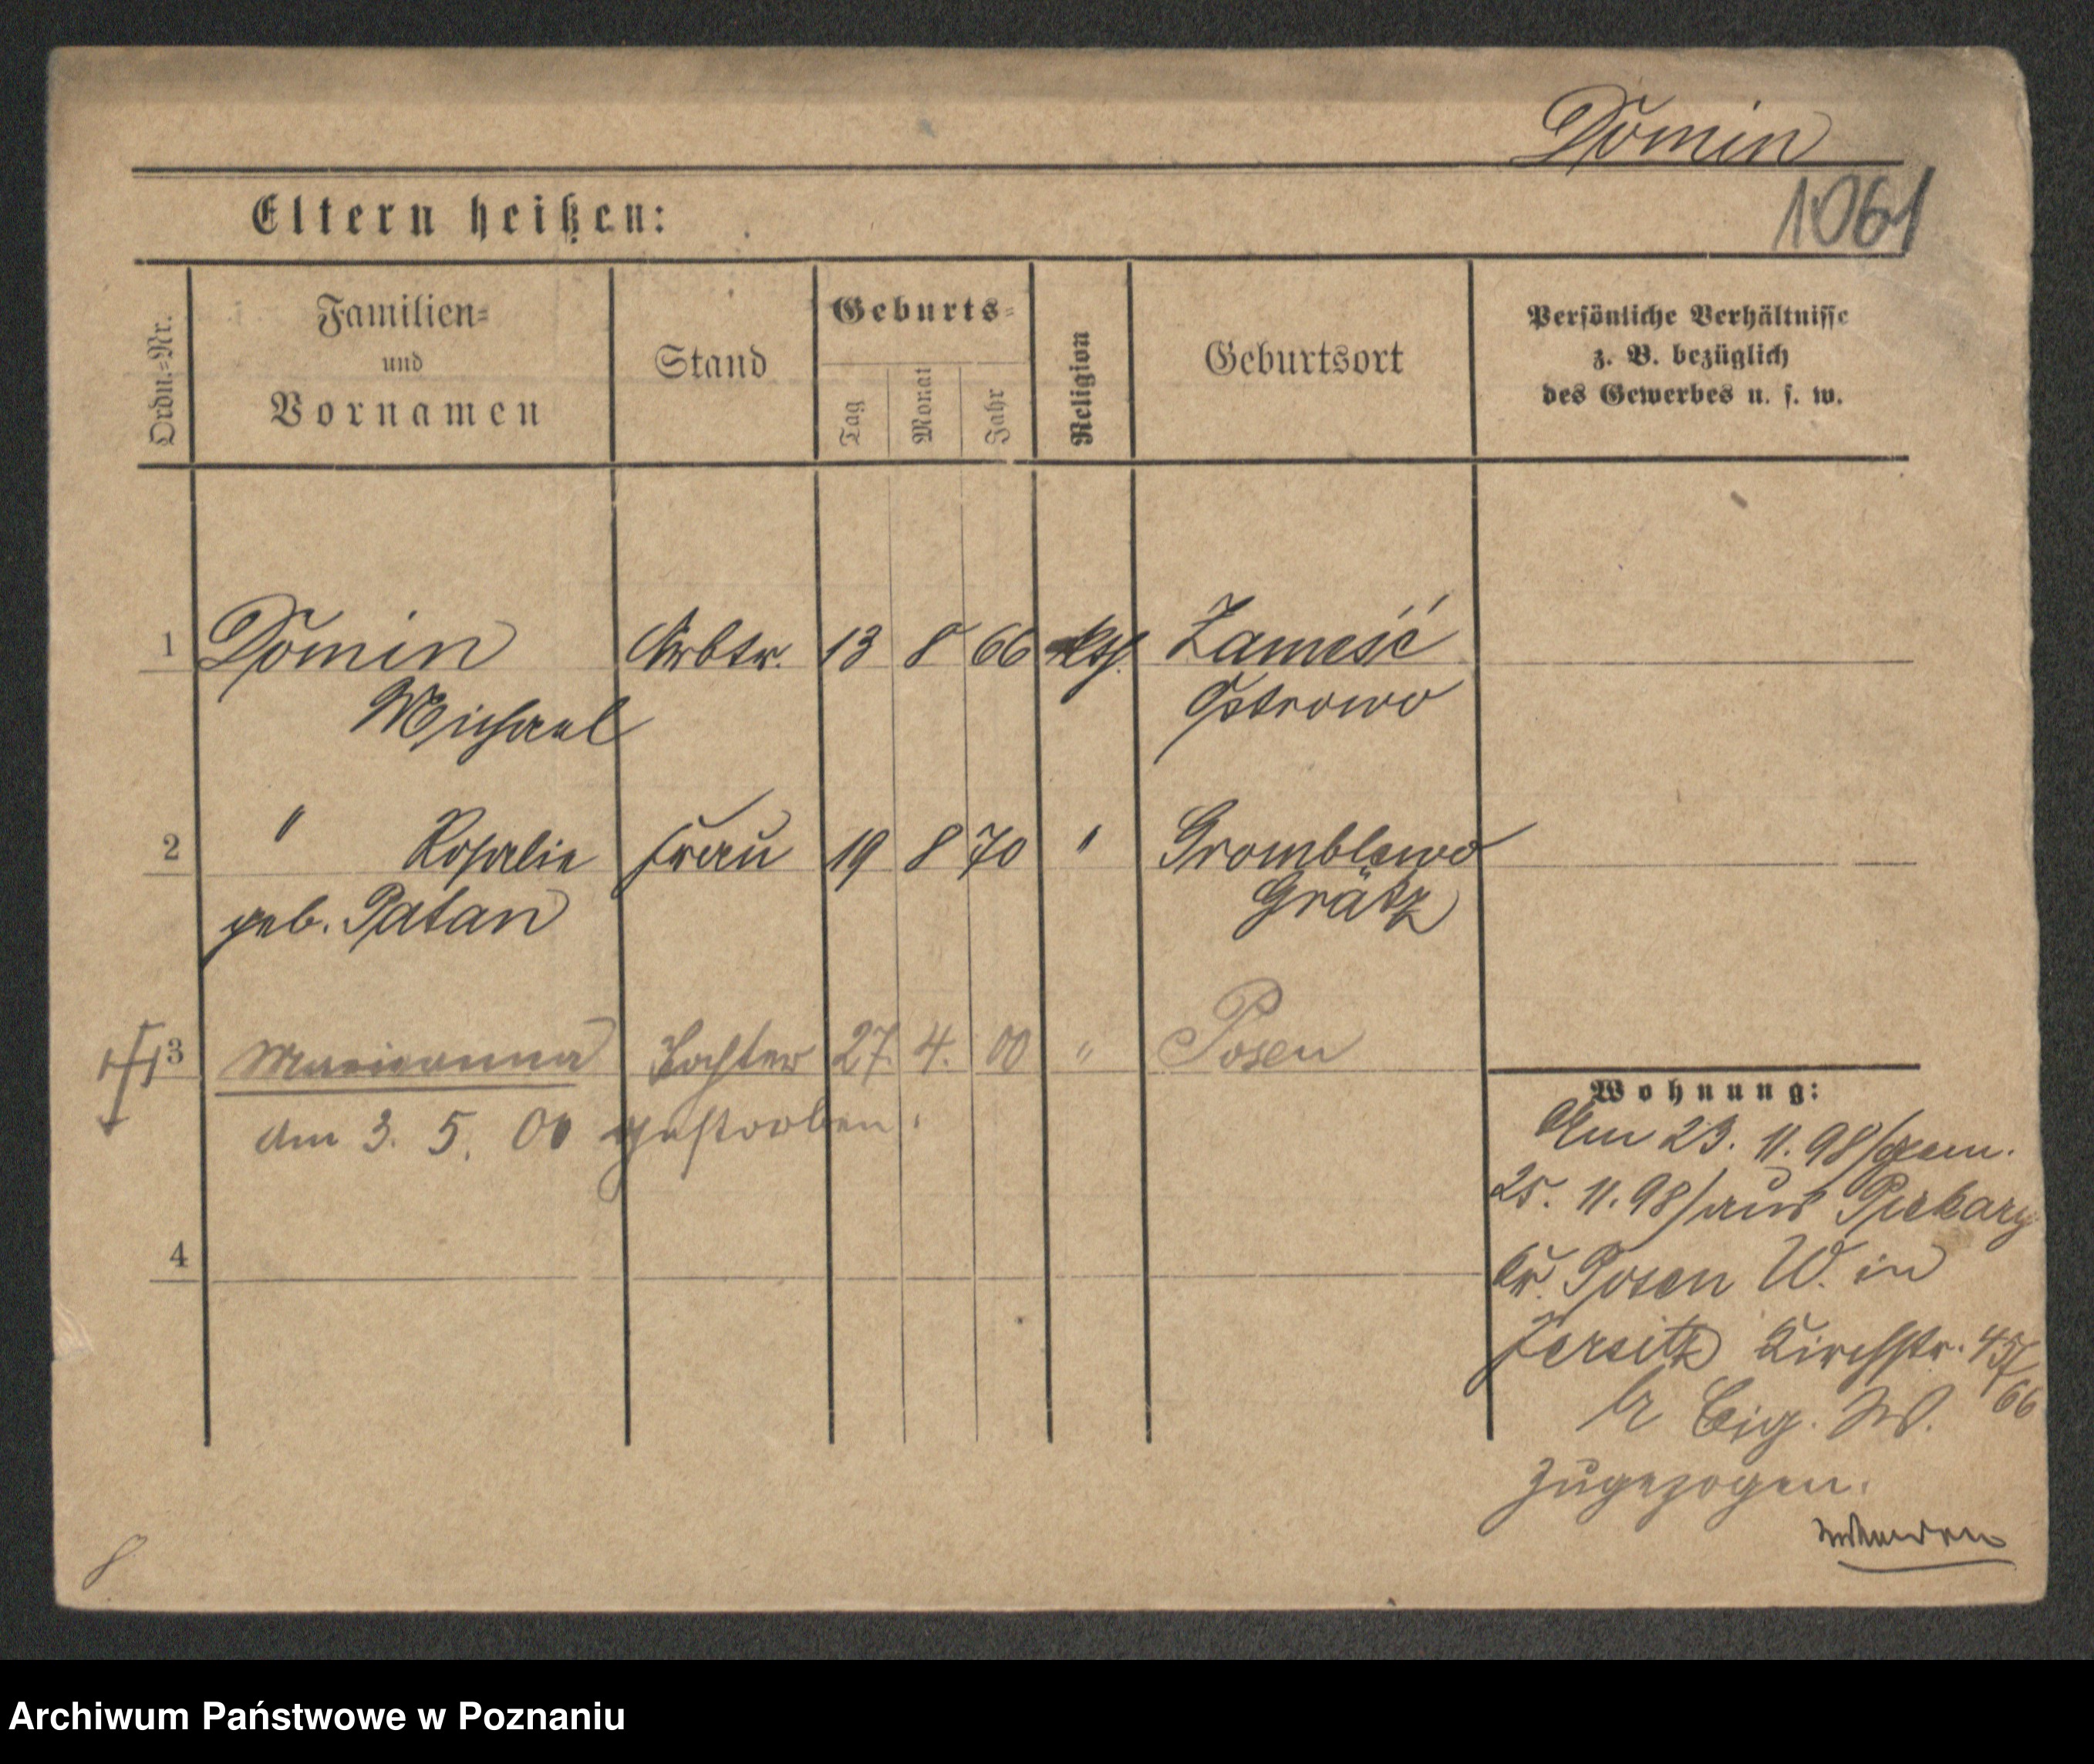 Domin
1061
Eltern heißen:
Ordn.=Nr.
Familien=
und
Vornamen
Stand
Geburts=
Tag
Monat
Jahr
Religion
Geburtsort
Persönliche Verhältnisse
z. B. bezüglich
des Gewerbes u. s. w.
1 Domin Arbtr. 13 8 66 kth. Zamość
Michael Ostrowo
2 " Rosalie Frau 19 8 70 " Gromblewo
geb. Patan Grätz
3 Marianna Tochter 27. 4. 00 " Posen
am 3. 5. 00 gestorben.
4
Wohnung:
Am 23. 11. 98/gem.
25. 11. 98/aus Piekary
Kr. Posen W. in
Jersitz Kirchstr. 45/
66
Eig. W.
zugezogen.
wenden
8
Archiwum Państwowe w Poznaniu